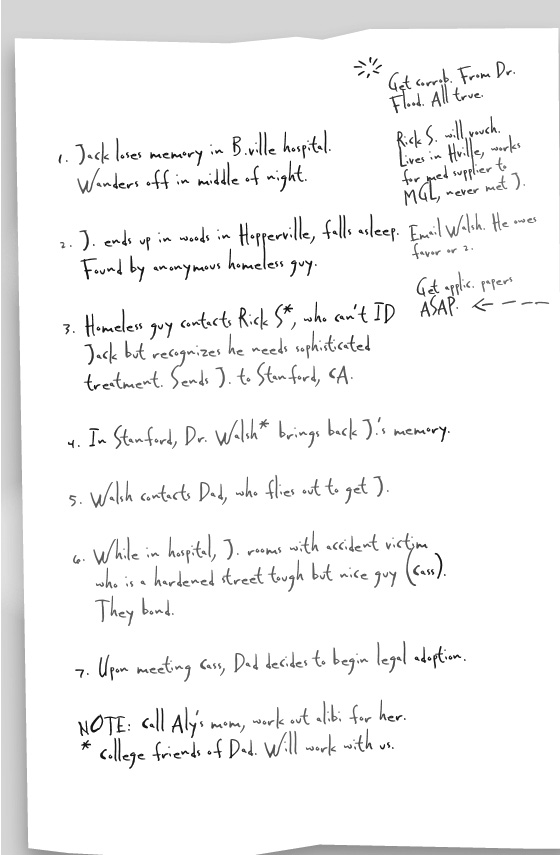 Get corrob. From Dr.
Flood. All true.
1. Jack loses memory in B.ville hospital.
Wanders off in middle of night.
Rick S. will vouch.
Lives in Hville, works
for med supplier to
MGL, never met J.
2. J. ends up in woods in Hopperville, falls asleep.
Found by anonymous homeless guy.
Email Walsh. He owes
favor or 2.
Get applic. papers
ASAP. <- - - -
3. Homeless guy contacts Rick S*, who can't ID
Jack but recognizes he needs sophisticated
treatment. Sends J. to Stanford, CA.
4. In Stanford, Dr. Walsh* brings back J.'s memory.
5. Walsh contacts Dad, who flies out to get J.
6. While in hospital, J. rooms with accident victim
who is a hardened street tough but nice guy (Cass).
They bond.
7. Upon meeting Cass, Dad decides to begin legal adoption.
NOTE: Call Aly's mom, work out alibi for her.
* College friends of Dad. Will work with us.